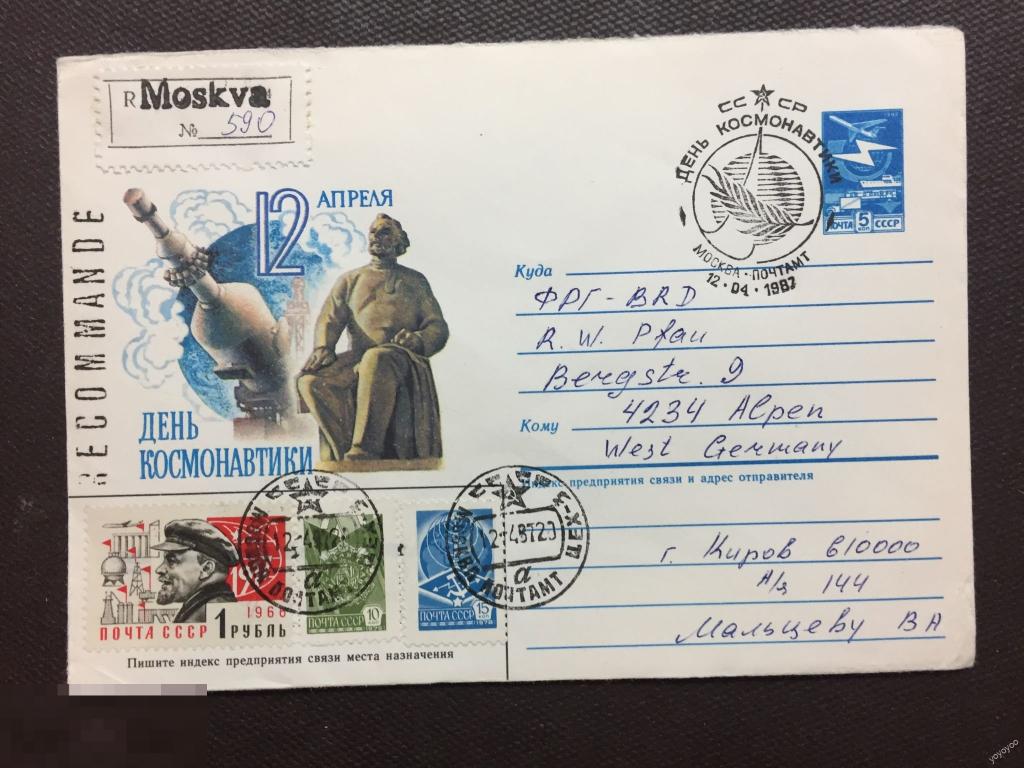 R Moskva
№ 590
RECOMMANDE
12 АПРЕЛЯ
ДЕНЬ
КОСМОНАВТИКИ
СССР
ДЕНЬ КОСМОНАВТИКИ
МОСКВА · ПОЧТАМТ
12 · 04 · 1987
ПОЧТА 5 КОП СССР
Куда
ФРГ - BRD
R. W. Pfau
Bergstr. 9
Кому
4234 Alpen
West Germany
Индекс предприятия связи и адрес отправителя
г. Киров 610000
А/я 144
Мальцеву ВА
1966
ПОЧТА СССР 1 РУБЛЬ
10
ПОЧТА СССР 15 КОП
1978
МОСКВА
ПОЧТАМТ
ЦЕХ-
α
Пишите индекс предприятия связи места назначения
yoyoyoo